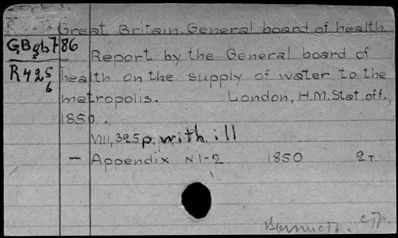 Great Britain. General board of health.
GBgb786
Report by the General board of
R425
health on the supply of water to the
6
metropolis. London, H.M. Stat. off.,
1850.
VIII, 325 p. with. ill
— Appendix N 1-2 1850 2 т.
стр.